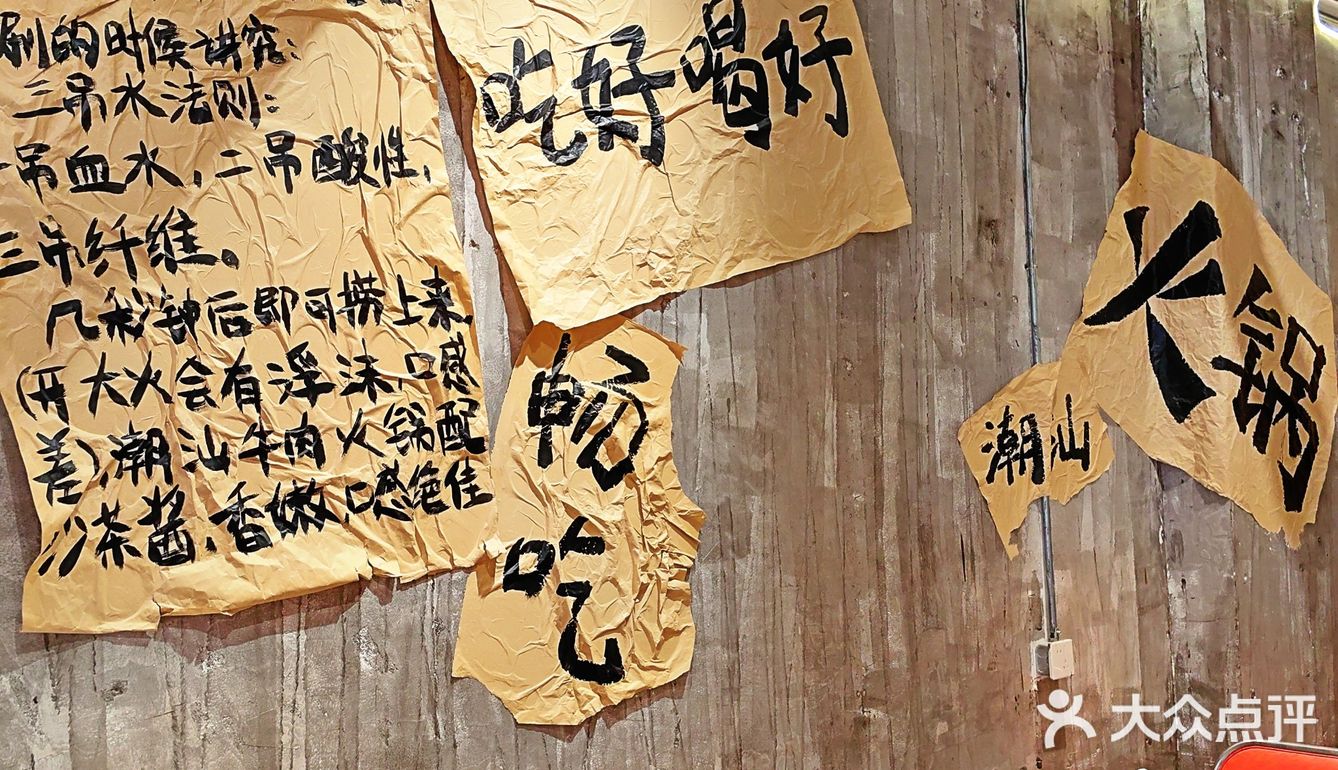 刷的时候讲究：
三吊水法则：
一吊血水，二吊酸性，
三吊纤维。
几秒钟后即可捞上来
(开大火会有浮沫，口感
差)，潮汕牛肉火锅配
沙茶酱，香嫩，口感绝佳
吃好喝好
畅吃
火锅
潮汕
大众点评